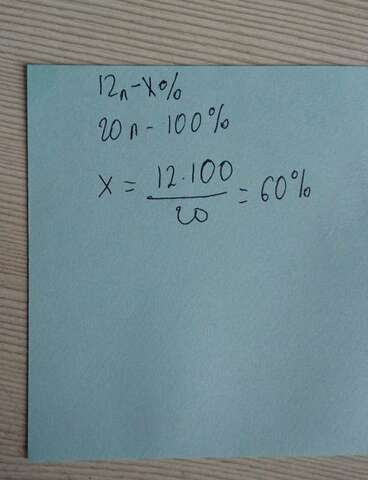 12л-x%
20л-100%
x = 12·100/20 = 60%